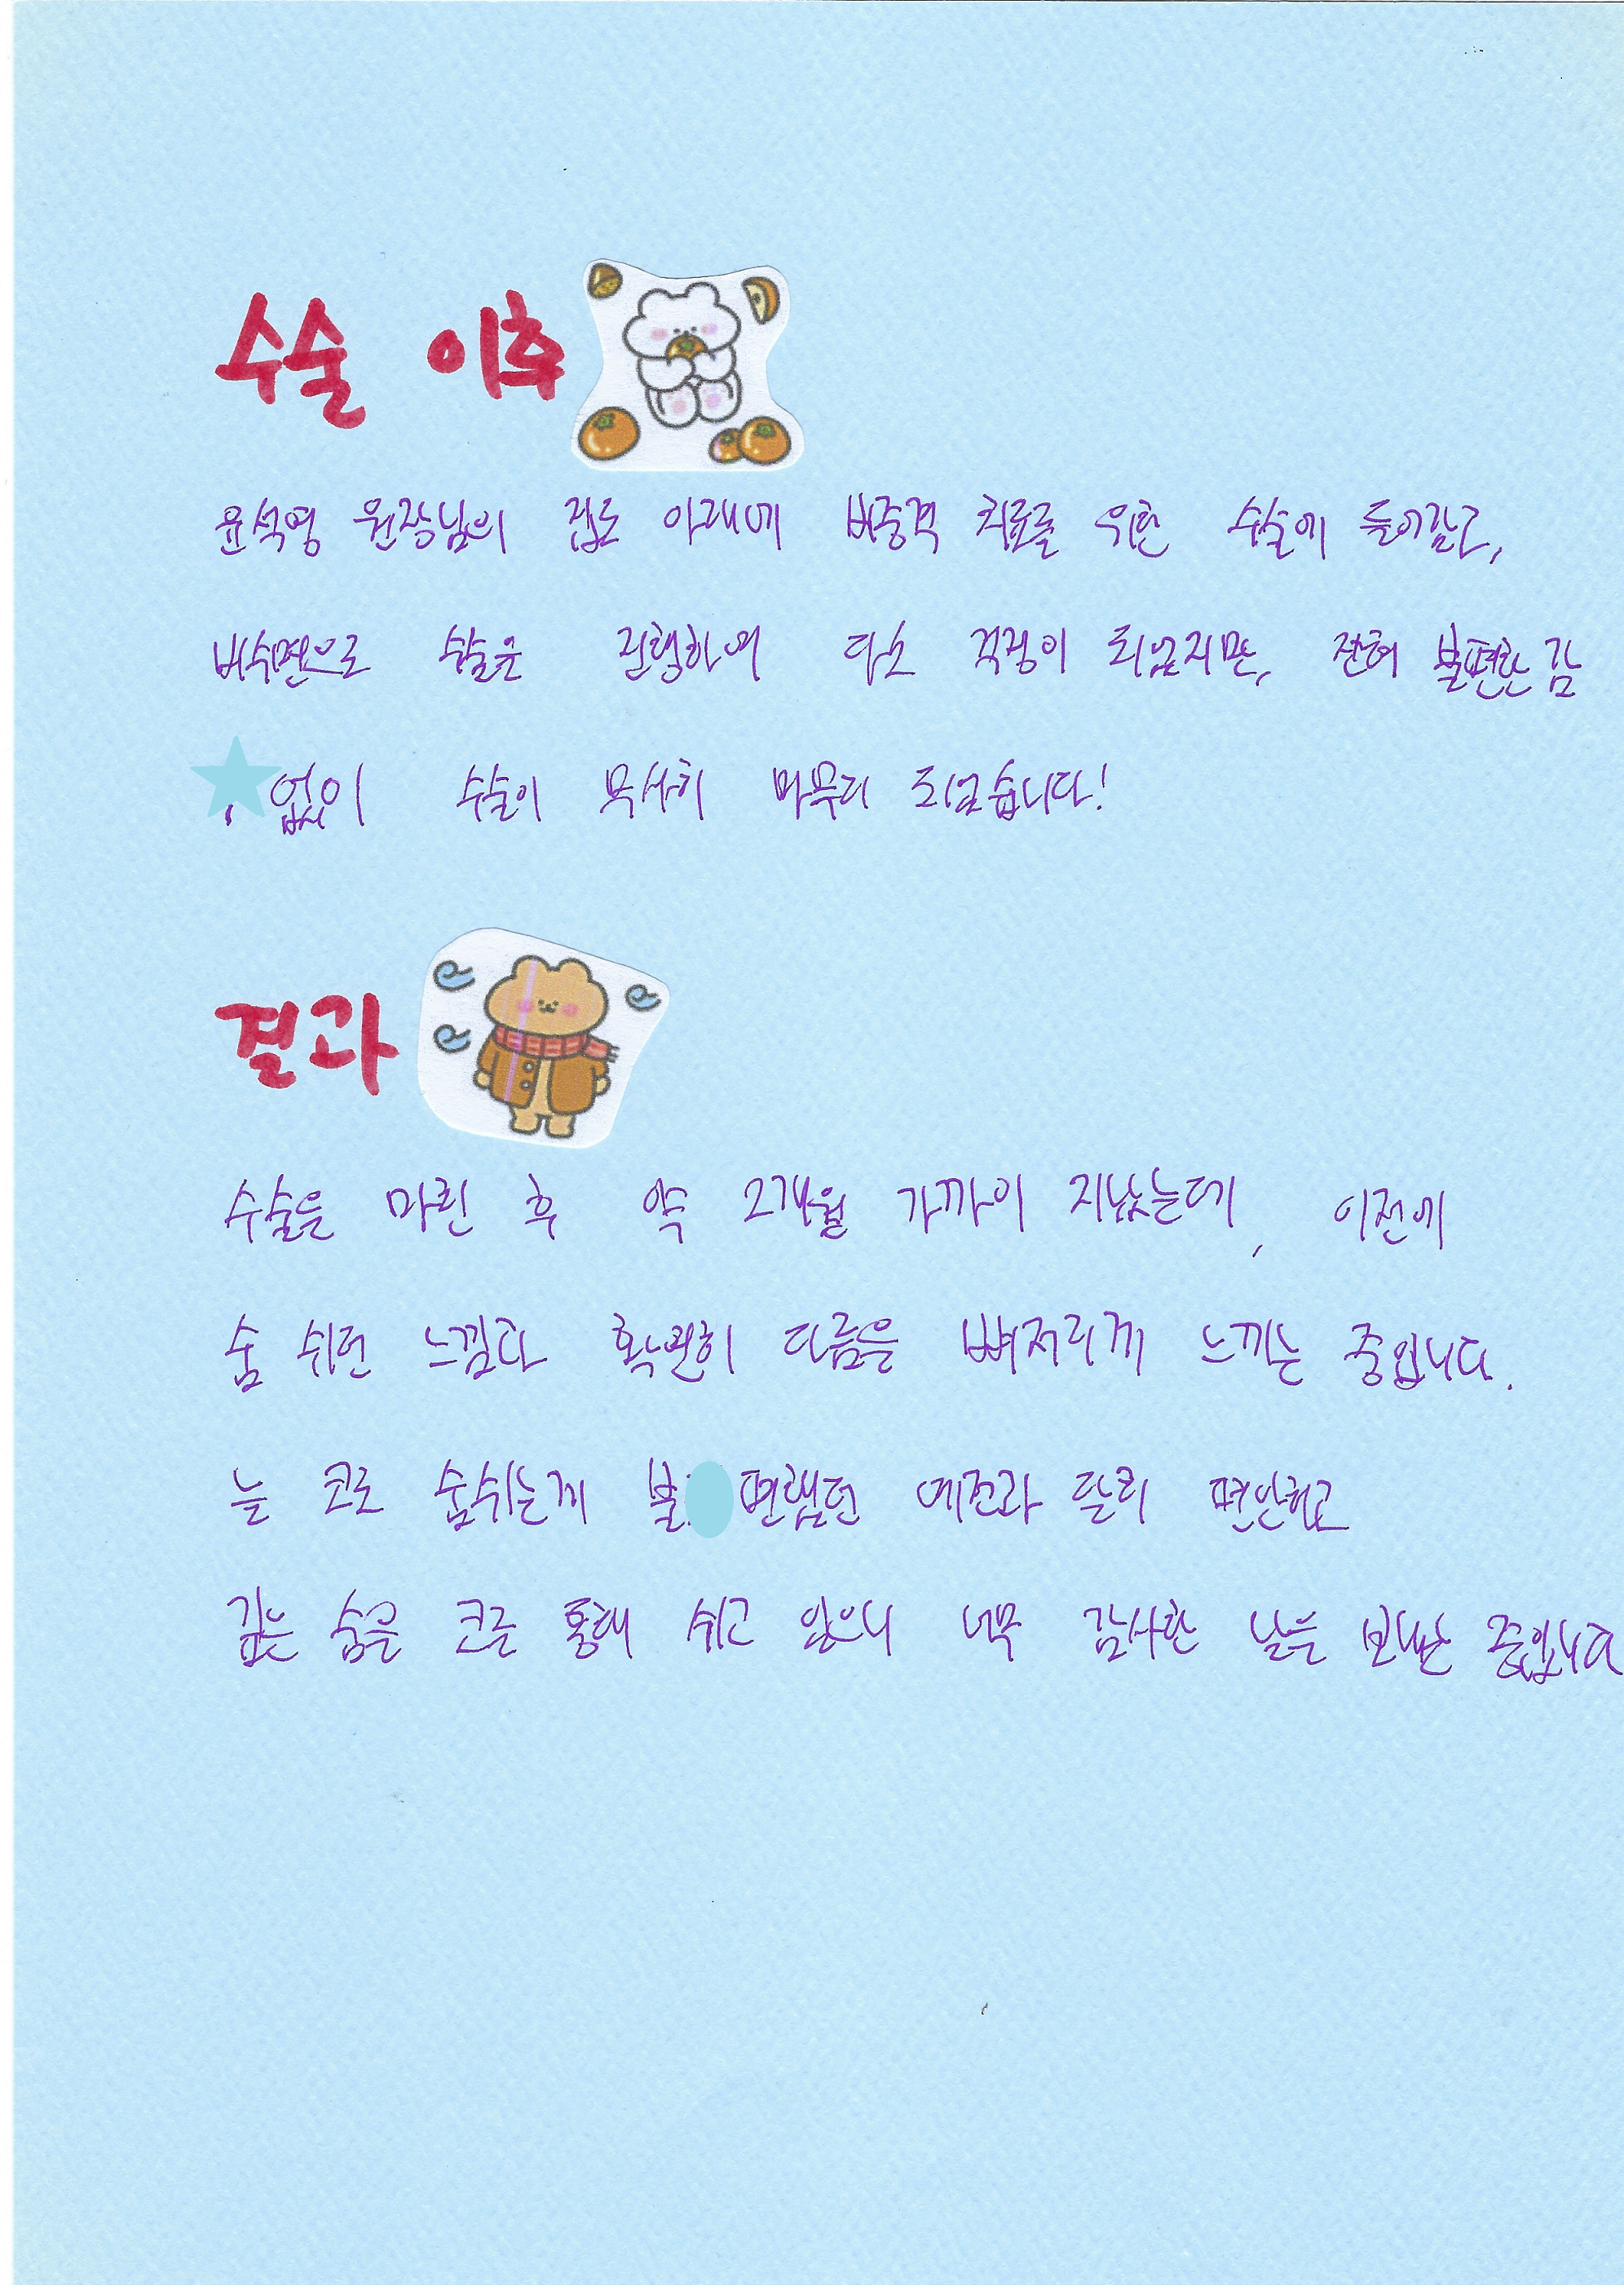 수술 이후
윤석영 원장님의 집도 아래에 비중격 치료를 위한 수술에 들어갔고,
비수면으로 수술을 진행하여 다소 걱정이 되었지만, 전혀 불편한 감
없이 수술이 무사히 마무리 되었습니다!
결과
수술을 마친 후 약 2개월 가까이 지났는데, 이전에
숨 쉬던 느낌과 확연히 다름을 뼈저리게 느끼는 중입니다.
늘 코로 숨쉬는게 불편했던 예전과 달리 편안하고
깊은 숨을 코를 통해 쉬고 있으니 너무 감사한 날을 보내는 중입니다